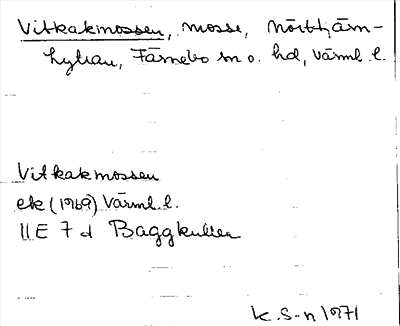 Vitkakmossen, mosse, Mörttjärn-
hyttan, Färnebo sn o. hd, Värml. l.
Vitkakmossen
ek (1969) Värml. l.
11E 7 d Baggkullen
K. S-n 1971